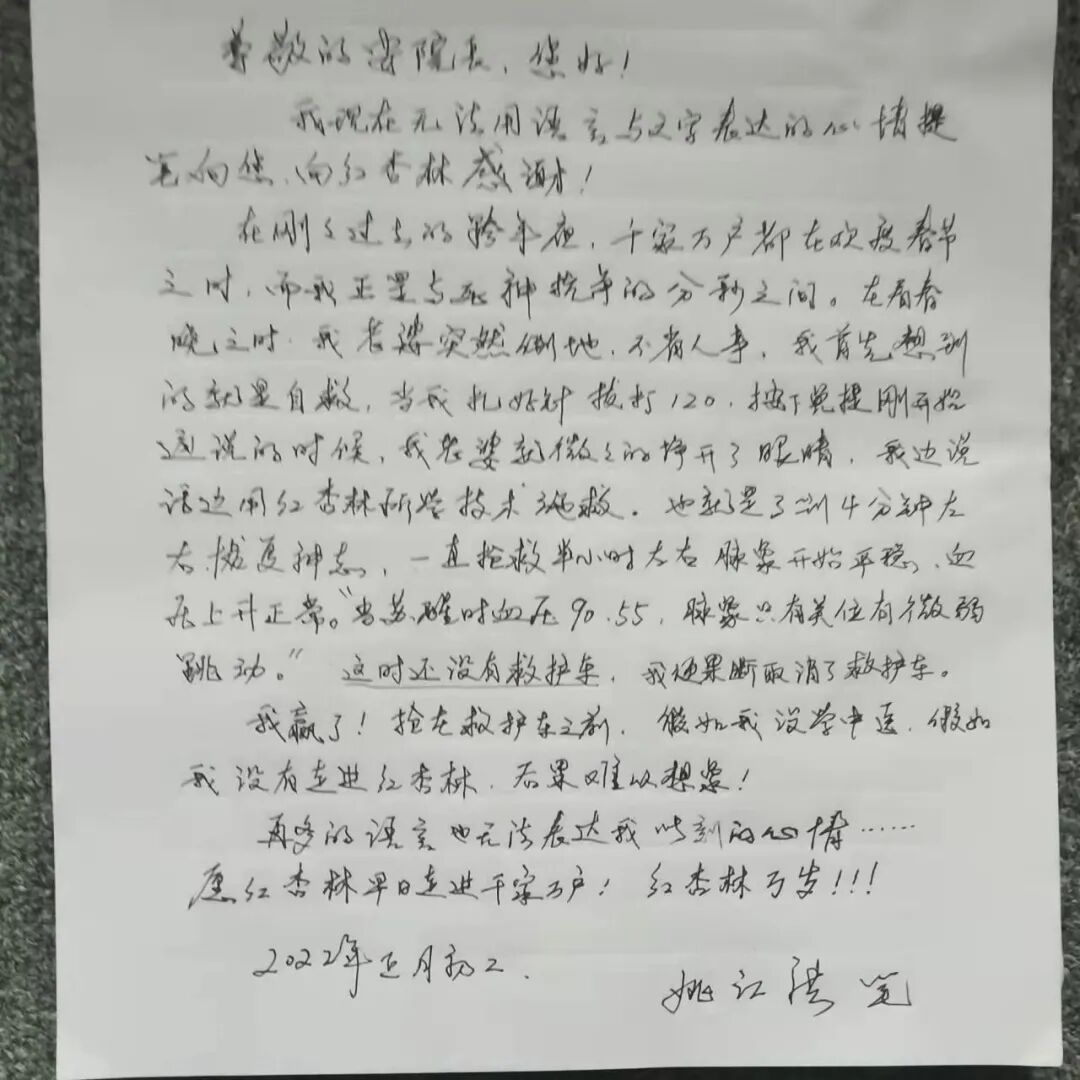 尊敬的安院长，您好！
我现在无法用语言与文字表达的心情提
笔向您、向红杏林感谢！
在刚々过去的跨年夜，千家万户都在欢度春节
之时，而我正是与死神抗争的分秒之间。在看春
晚之时，我老婆突然倒地，不省人事，我首先想到
的就是自救，当我扎好针拨打120，按下免提刚开始
通说的时候，我老婆就微々的睁开了眼睛，我边说
话边用红杏林所学技术施救。也就是了到4分钟左
右恢复神志，一直抢救半小时左右脉象开始平稳、血
压上升正常。“当苏醒时血压90.55，脉象只有关位有微弱
跳动。”这时还没有救护车，我便果断取消了救护车。
我赢了！抢在救护车之前，假如我没学中医，假如
我没有走进红杏林，后果难以想象！
再多的语言也无法表达我此刻的心情……
愿红杏林早日走进千家万户！红杏林万岁！！！
2022年正月初二.
姚江洪笔